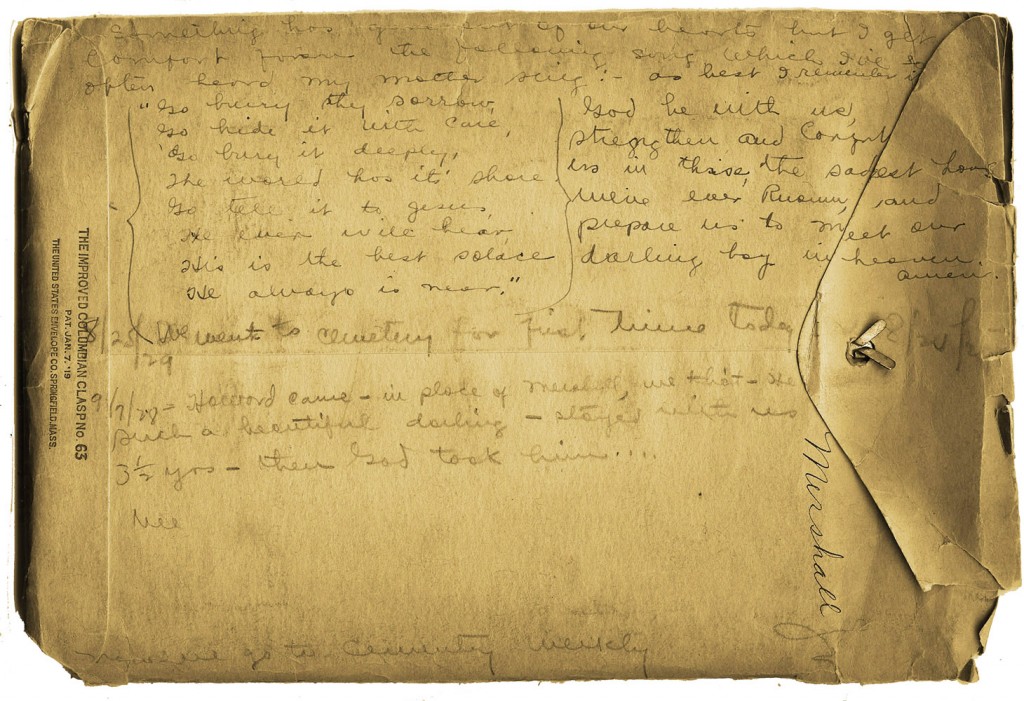 Something has gone out of our hearts but I get
Comfort from the following song which I've so
often heard my mother sing:- as best I remember it
"Go bury thy sorrow,
Go hide it with care,
Go bury it deeply,
The world has its share.
Go tell it to Jesus,
He ever will hear
His is the best solace
He always is near."
God be with us,
strengthen and Comfort
us in this, the sadest hour
we've ever known, and
prepare us to meet our
darling boy in heaven.
amen.
8/25/29 We went to cemetery for first time today
9/7/29 = Howard came - in place of we that - He
such a beautiful darling - stayed with us
3½ yrs - then God took him....
we go to Cementry weekly
Mershall
THE IMPROVED COLUMBIAN CLASP No. 63
PAT. JAN. 7, '19
THE UNITED STATES ENVELOPE CO. SPRINGFIELD, MASS.